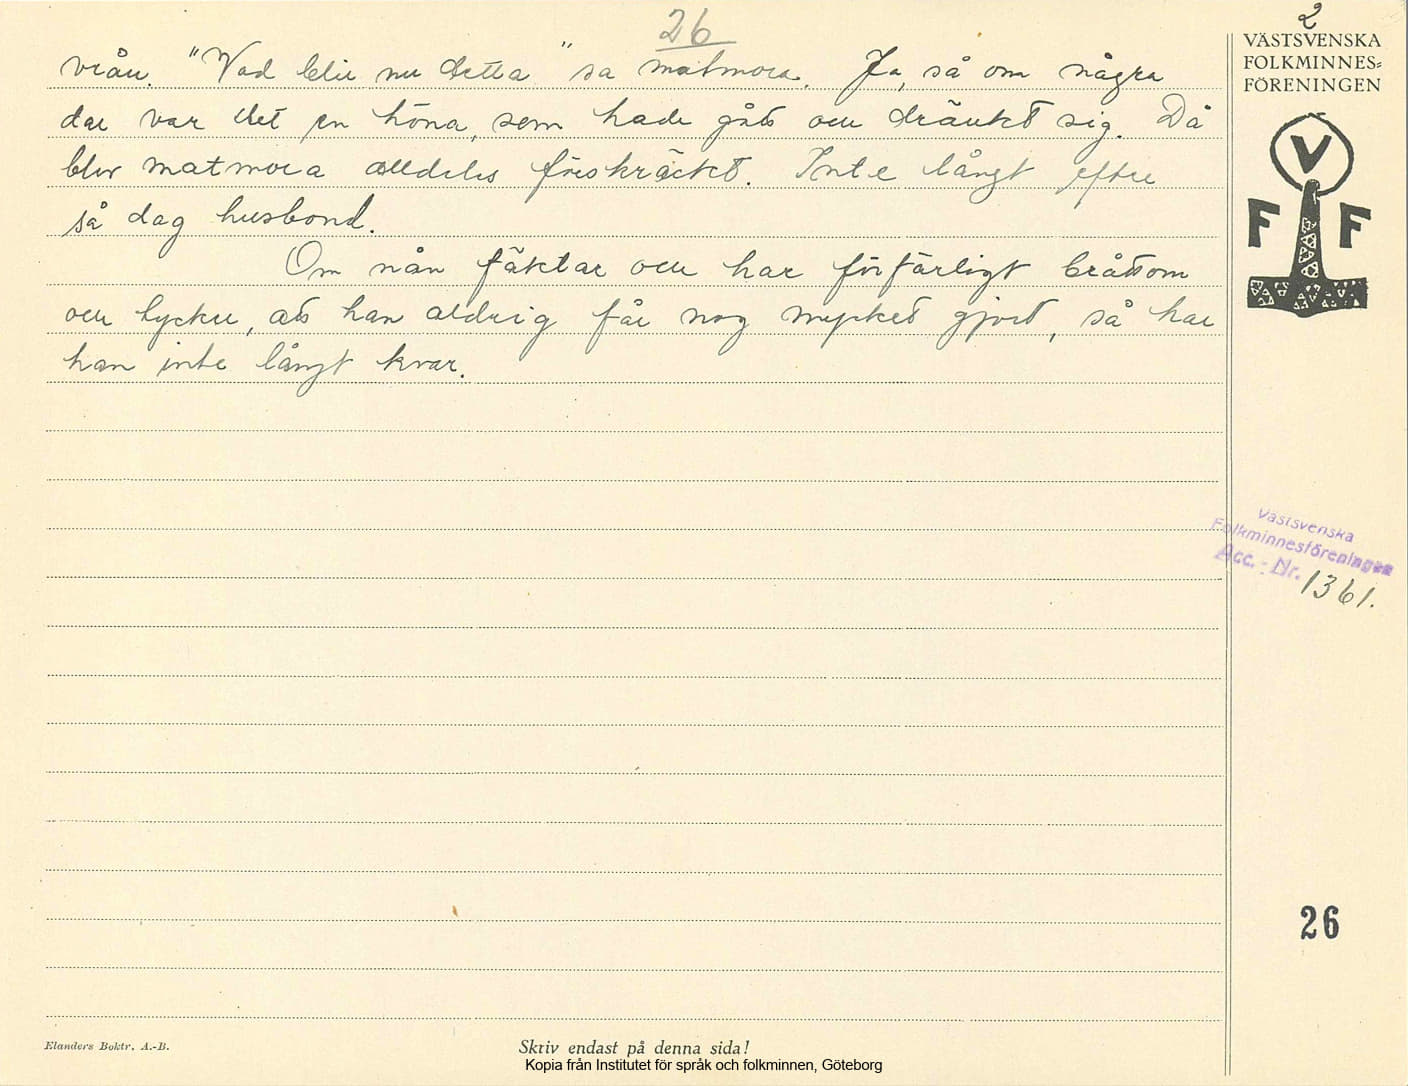 26
2
vrån. "Vad blir nu detta" sa matmora. Ja, så om några
dar var det en höna, som hade gått och dränkt sig. Då
blev matmora alldeles förskräckt. Inte långt efter
så dog husbond.
Om nån fäktar och har förfärligt bråttom
och tycker, att han aldrig får nog mycket gjort, så har
han inte långt kvar.
VÄSTSVENSKA
FOLKMINNES=
FÖRENINGEN
V
F F
Västsvenska
Folkminnesföreningen
Acc. - Nr. 1361.
26
Elanders Boktr. A.-B.
Skriv endast på denna sida!
Kopia från Institutet för språk och folkminnen, Göteborg